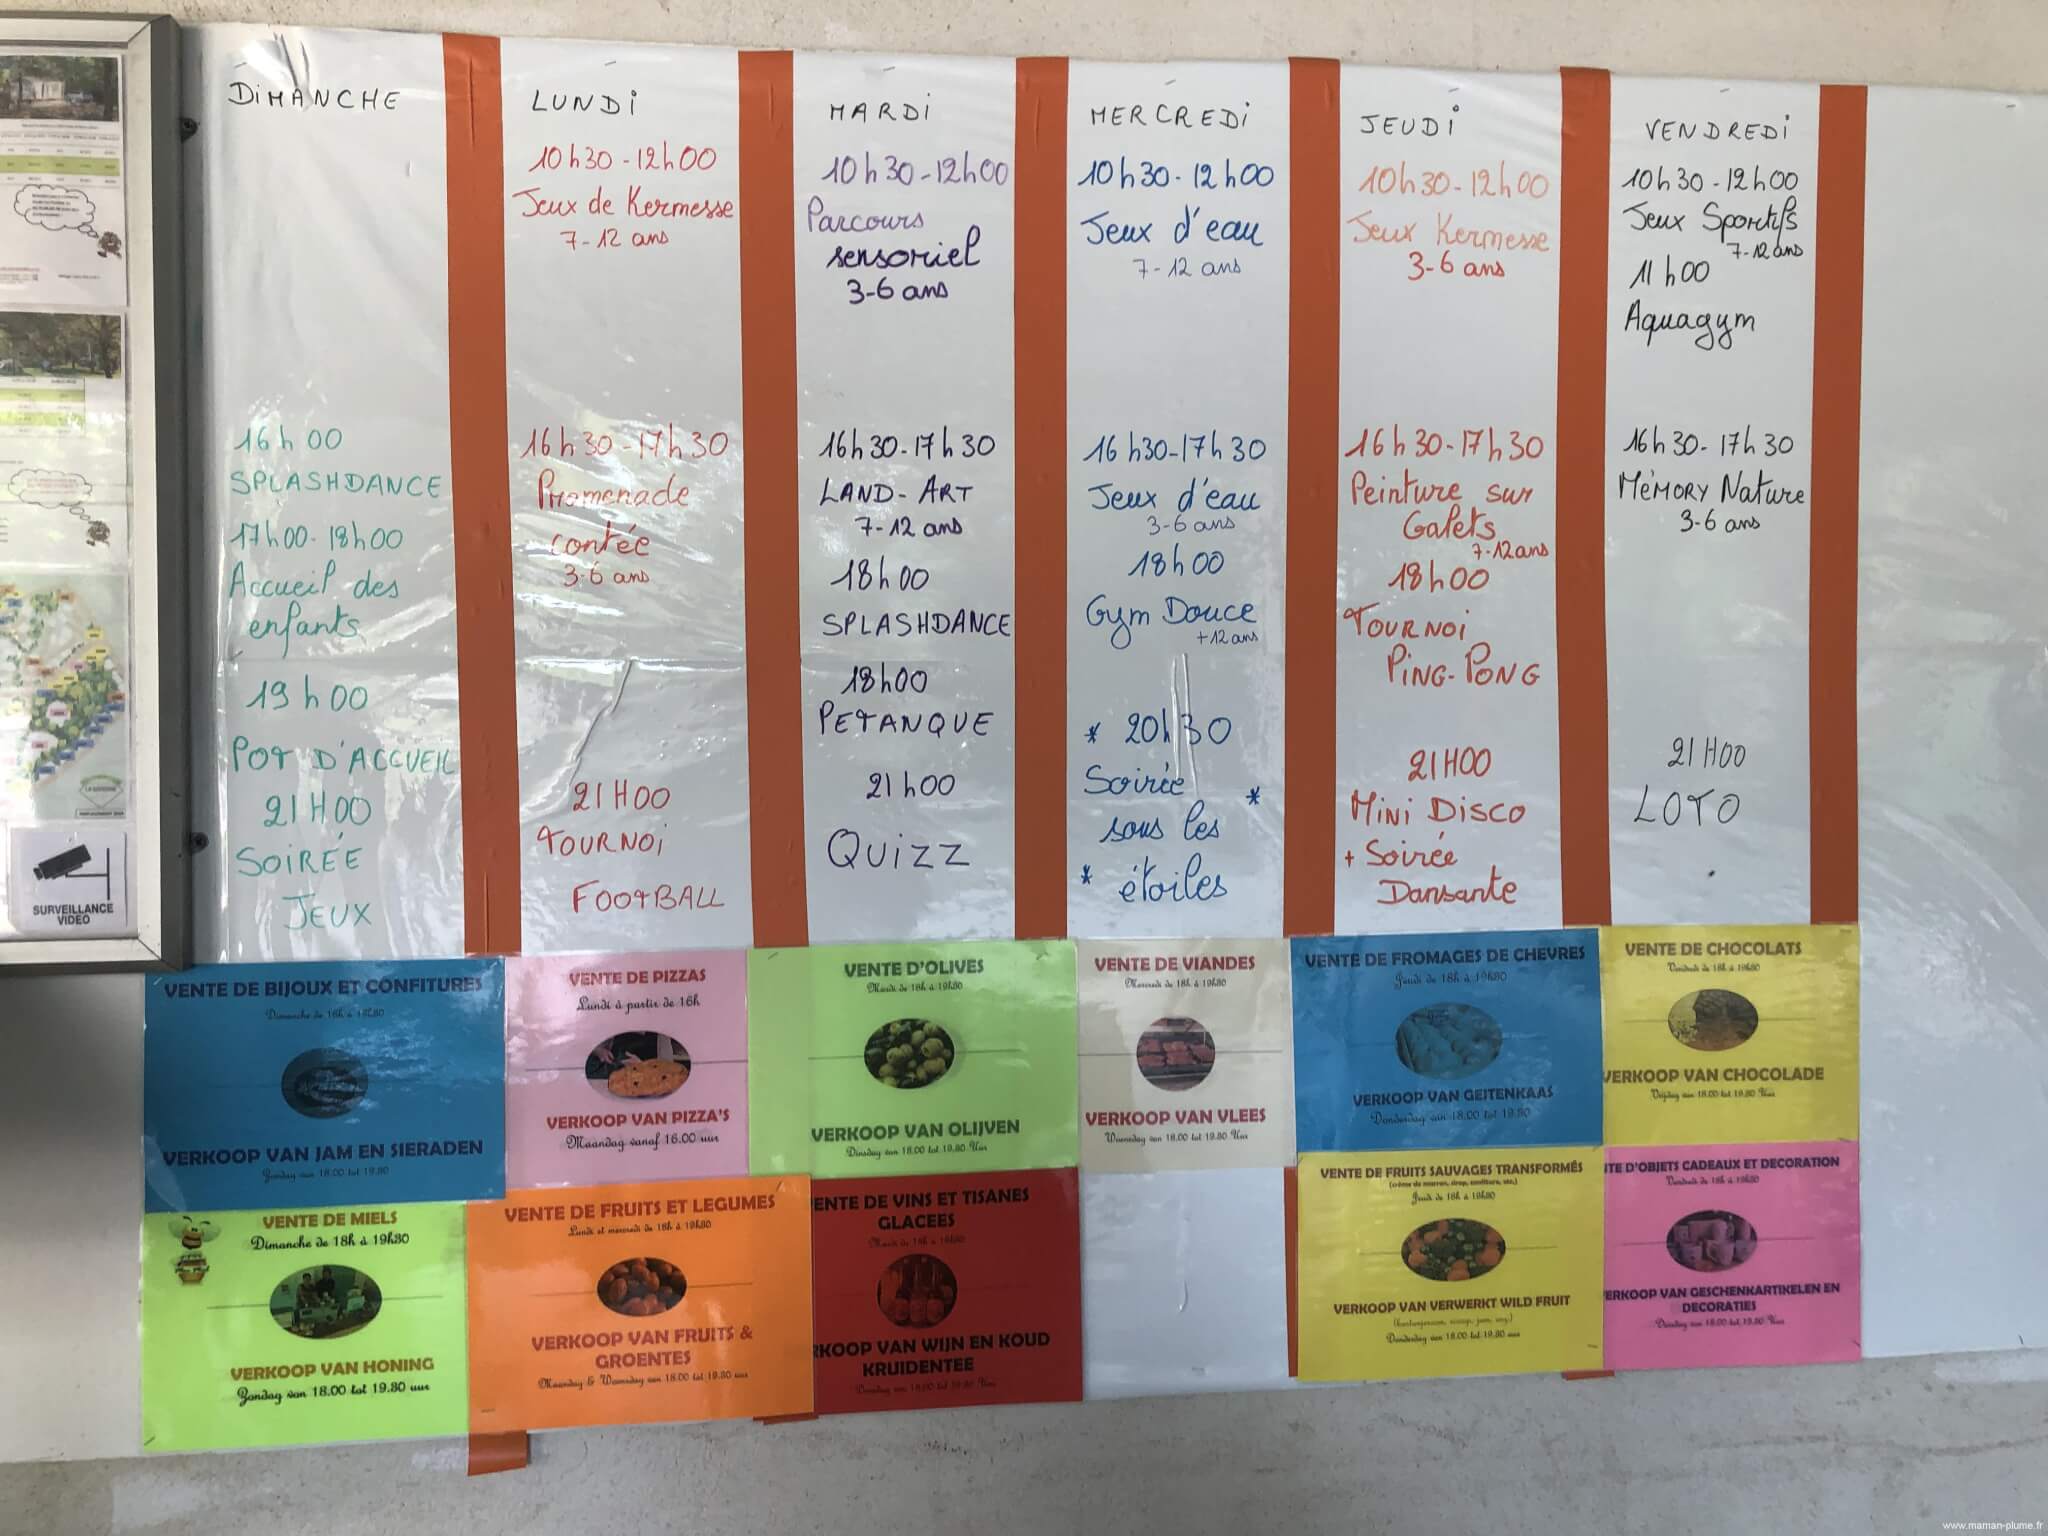 DIMANCHE
16h00
SPLASHDANCE
17h00-18h00
Accueil des
enfants
19h00
POT D'ACCUEIL
21H00
SOIRÉE
JEUX
LUNDI
10h30-12h00
Jeux de Kermesse
7-12 ans
16h30-17h30
Promenade
contée
3-6 ans
21H00
TOURNOI
FOOTBALL
MARDI
10h30-12h00
Parcours
sensoriel
3-6 ans
16h30-17h30
LAND-ART
7-12 ans
18h00
SPLASHDANCE
18h00
PETANQUE
21h00
QUIZZ
MERCREDI
10h30-12h00
Jeux d'eau
7-12 ans
16h30-17h30
Jeux d'eau
3-6 ans
18h00
Gym Douce
+12 ans
* 20h30
Soirée *
sous les
* étoiles
JEUDI
10h30-12h00
Jeux Kermesse
3-6 ans
16h30-17h30
Peinture sur
Galets
7-12 ans
18h00
TOURNOI
PING-PONG
21H00
MINI DISCO
+ Soirée
Dansante
VENDREDI
10h30-12h00
Jeux Sportifs
7-12 ans
11h00
Aquagym
16h30-17h30
MÉMORY Nature
3-6 ans
21H00
LOTO
SURVEILLANCE
VIDEO
VENTE DE BIJOUX ET CONFITURES
Dimanche de 18h à 19h30
VERKOOP VAN JAM EN SIERADEN
Zondag van 18.00 tot 19.30
VENTE DE PIZZAS
Lundi à partir de 16h
VERKOOP VAN PIZZA'S
Maandag vanaf 16.00 uur
VENTE D'OLIVES
Mardi de 18h à 19h30
VERKOOP VAN OLIJVEN
Dinsdag van 18.00 tot 19.30 Uur
VENTE DE VIANDES
Mercredi de 18h à 19h30
VERKOOP VAN VLEES
Woensdag van 18.00 tot 19.30 Uur
VENTE DE FROMAGES DE CHEVRES
Jeudi de 18h à 19h30
VERKOOP VAN GEITENKAAS
Donderdag van 18.00 tot 19.30
VENTE DE CHOCOLATS
Vendredi de 18h à 19h30
VERKOOP VAN CHOCOLADE
Vrijdag van 18.00 tot 19.30 Uur
VENTE DE MIELS
Dimanche de 18h à 19h30
VERKOOP VAN HONING
Zondag van 18.00 tot 19.30 uur
VENTE DE FRUITS ET LEGUMES
Lundi et mercredi de 18h à 19h30
VERKOOP VAN FRUITS &
GROENTES
Maandag & Woensdag van 18.00 tot 19.30 uur
VENTE DE VINS ET TISANES
GLACEES
Mardi de 18h à 19h30
RKOOP VAN WIJN EN KOUD
KRUIDENTEE
Dinsdag van 18.00 tot 19.30 Uur
VENTE DE FRUITS SAUVAGES TRANSFORMÉS
(crème de marron, sirop, confiture, etc.)
Jeudi de 18h à 19h30
VERKOOP VAN VERWERKT WILD FRUIT
Donderdag van 18.00 tot 19.30 uur
TE D'OBJETS CADEAUX ET DECORATION
Vendredi de 18h à 19h30
ERKOOP VAN GESCHENKARTIKELEN EN
DECORATIES
Dinsdag van 18.00 tot 19.30 Uur
www.maman-plume.fr